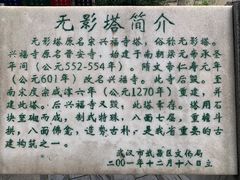 无影塔简介
无影塔原名兴福寺塔，俗称无影塔。
兴福寺原名晋安寺，始建于南朝梁元帝承圣
年间（公元552-554年）。隋文帝仁寿元年
（公元601年）改名兴福寺。此寺后毁。至
南宋度宗咸淳六年（公元1270年）重建，并
建此塔。后兴福寺又毁，此塔犹存。塔用石
块垒砌而成，制式特殊，八面七层，重檐斗
拱，八面佛龛，造势古朴，是我省重要的古
建构筑之一。
武汉市武昌区文化局
二00一年十二月十八日立